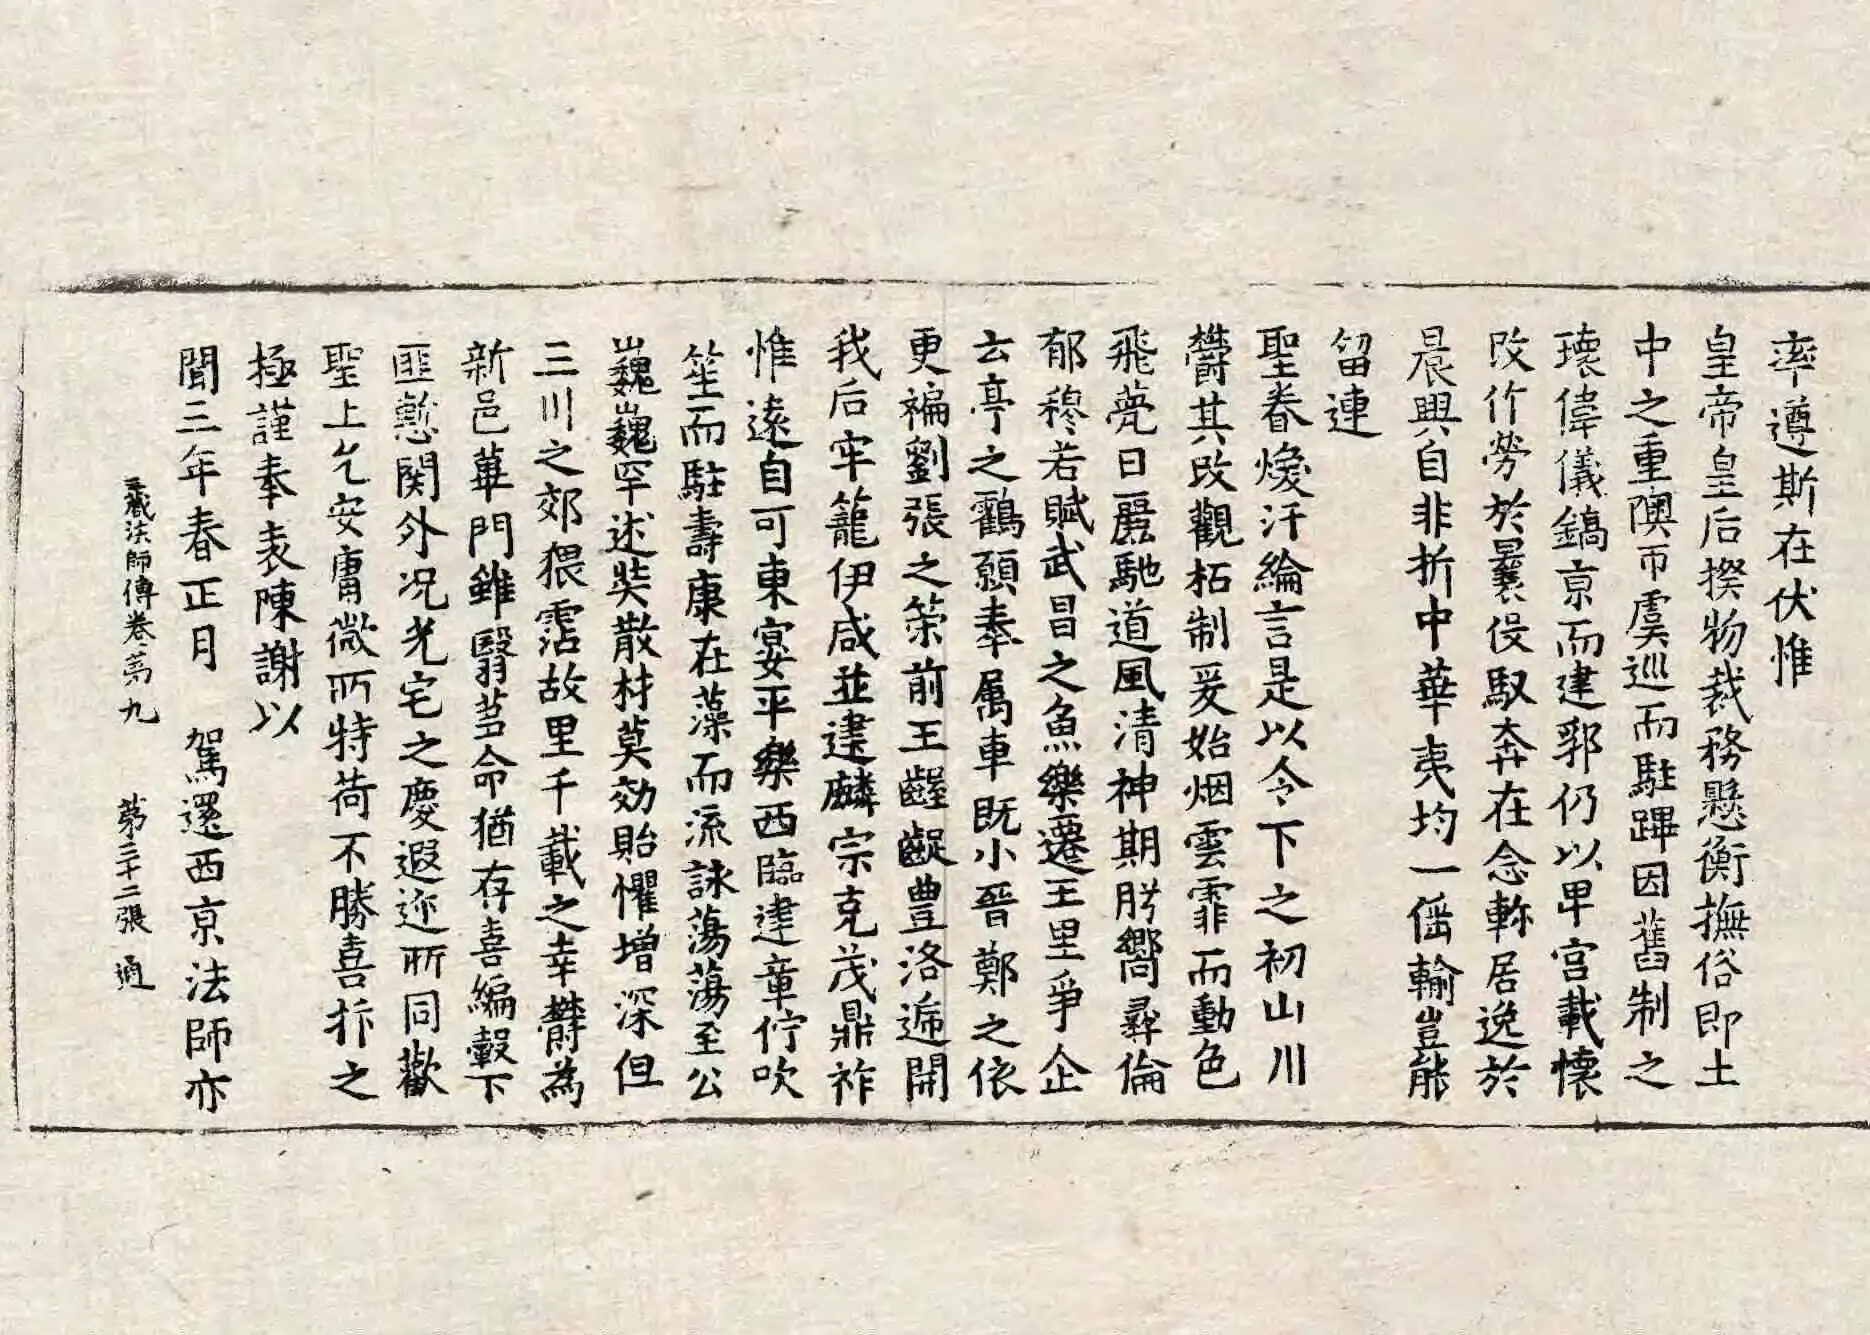 率遵斯在伏惟
皇帝皇后揆物裁務懸衡撫俗即土
中之重隩帀虞巡而駐蹕因舊制之
瓌偉儀鎬京而建郛仍以卑宮載懷
改作勞於曩役馭奔在念軫居逸於
晨興自非折中華夷均一徭輸豈能
留連
聖眷煥汗綸言是以令下之初山川
欝其改觀柘制爰始烟雲霏而動色
飛甍日麗馳道風清神期肸嚮彞倫
郁穆若賦武昌之魚樂遷王里爭企
云亭之鸖願奉属車既小晉鄭之依
更褊劉張之策前王齷齪豊洛遞開
我后牢籠伊咸並建麟宗克茂鼎祚
惟遠自可東宴平樂西臨建章佇吹
笙而駐壽康在藻而流詠蕩蕩至公
巍巍罕述奘散材莫効貽懼增深但
三川之郊猥霑故里千載之幸欝為
新邑蓽門雖翳茖命猶存喜編轂下
匪慙関外况光宅之慶遐迩所同歡
聖上允安庸微所特荷不勝喜抃之
極謹奉表陳謝以
聞三年春正月　駕還西京法師亦
三藏法師傳卷第九　第三十二張　通